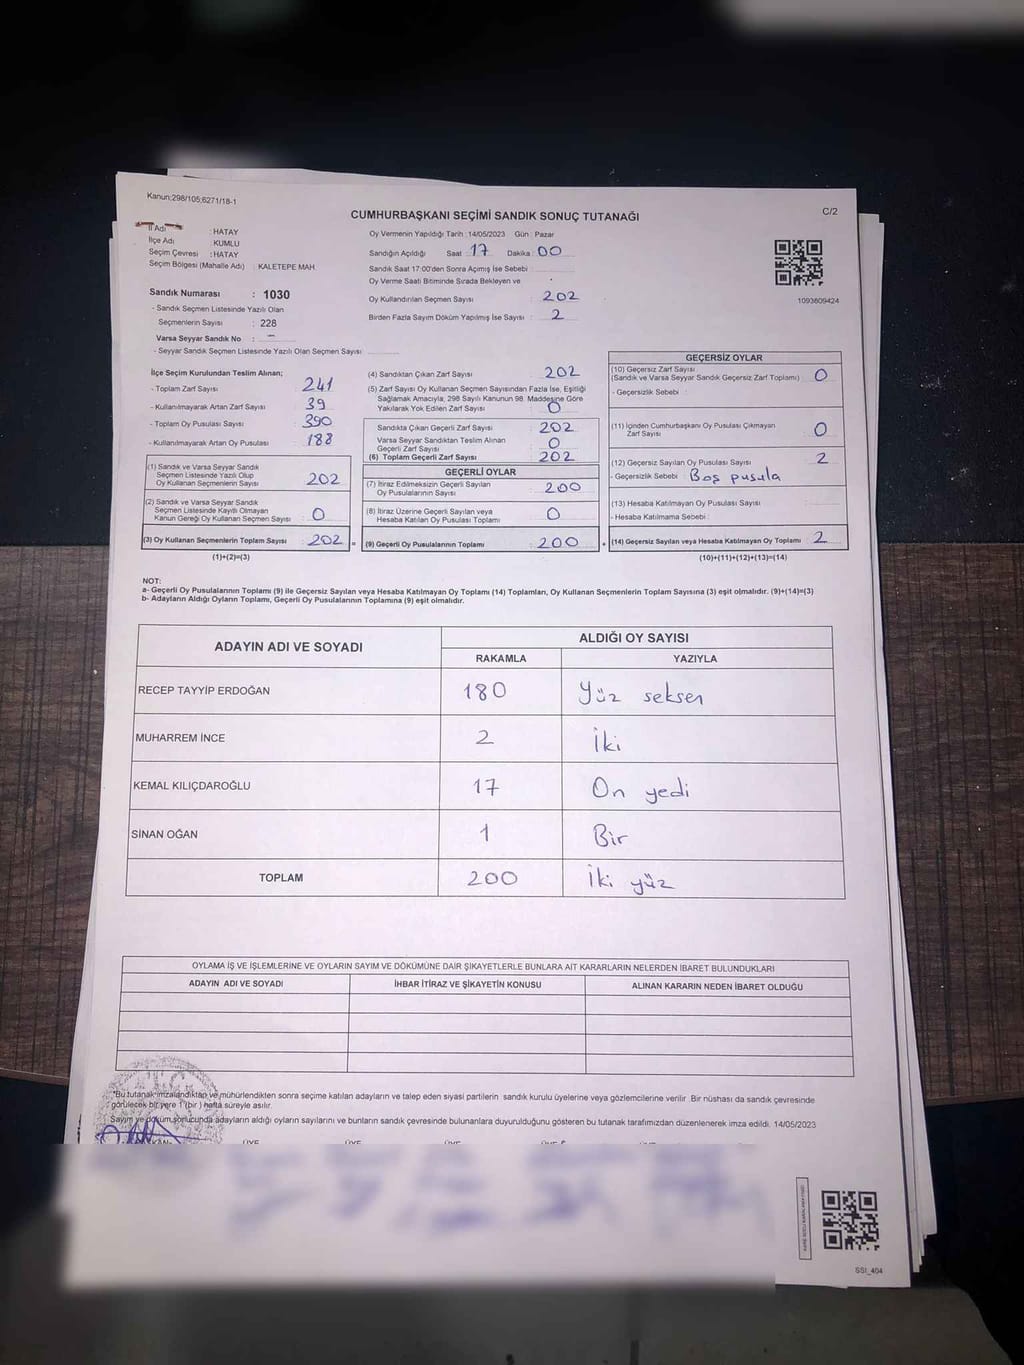 Kanun;298/105;6271/18-1
C/2
CUMHURBAŞKANI SEÇİMİ SANDIK SONUÇ TUTANAĞI
İl Adı : HATAY
İlçe Adı : KUMLU
Seçim Çevresi : HATAY
Seçim Bölgesi (Mahalle Adı) : KALETEPE MAH.
Sandık Numarası : 1030
- Sandık Seçmen Listesinde Yazılı Olan
Seçmenlerin Sayısı : 228
Varsa Seyyar Sandık No : -
- Seyyar Sandık Seçmen Listesinde Yazılı Olan Seçmen Sayısı
Oy Vermenin Yapıldığı Tarih :14/05/2023 Gün : Pazar
Sandığın Açıldığı Saat 17 Dakika 00
Sandık Saat 17:00'den Sonra Açılmış İse Sebebi :
Oy Verme Saati Bitiminde Sırada Bekleyen ve
Oy Kullandırılan Seçmen Sayısı : 202
Birden Fazla Sayım Döküm Yapılmış İse Sayısı : 2
1093809424
İlçe Seçim Kurulundan Teslim Alınan;
- Toplam Zarf Sayısı : 241
- Kullanılmayarak Artan Zarf Sayısı : 39
- Toplam Oy Pusulası Sayısı : 390
- Kullanılmayarak Artan Oy Pusulası : 188
(1) Sandık ve Varsa Seyyar Sandık
Seçmen Listesinde Yazılı Olup
Oy Kullanan Seçmenlerin Sayısı 202
(2) Sandık ve Varsa Seyyar Sandık
Seçmen Listesinde Kayıtlı Olmayan
Kanun Gereği Oy Kullanan Seçmen Sayısı 0
(3) Oy Kullanan Seçmenlerin Toplam Sayısı 202 =
(1)+(2)=(3)
(4) Sandıktan Çıkan Zarf Sayısı 202
(5) Zarf Sayısı Oy Kullanan Seçmen Sayısından Fazla İse, Eşitliği
Sağlamak Amacıyla; 298 Sayılı Kanunun 98. Maddesine Göre
Yakılarak Yok Edilen Zarf Sayısı 0
Sandıkta Çıkan Geçerli Zarf Sayısı 202
Varsa Seyyar Sandıktan Teslim Alınan
Geçerli Zarf Sayısı 0
(6) Toplam Geçerli Zarf Sayısı 202
GEÇERLİ OYLAR
(7) İtiraz Edilmeksizin Geçerli Sayılan
Oy Pusulalarının Sayısı 200
(8) İtiraz Üzerine Geçerli Sayılan veya
Hesaba Katılan Oy Pusulası Toplamı 0
(9) Geçerli Oy Pusulalarının Toplamı 200 +
GEÇERSİZ OYLAR
(10) Geçersiz Zarf Sayısı
(Sandık ve Varsa Seyyar Sandık Geçersiz Zarf Toplamı) 0
- Geçersizlik Sebebi :
(11) İçinden Cumhurbaşkanı Oy Pusulası Çıkmayan
Zarf Sayısı 0
(12) Geçersiz Sayılan Oy Pusulası Sayısı 2
- Geçersizlik Sebebi : Boş pusula
(13) Hesaba Katılmayan Oy Pusulası Sayısı
- Hesaba Katılmama Sebebi :
(14) Geçersiz Sayılan veya Hesaba Katılmayan Oy Toplamı 2
(10)+(11)+(12)+(13)=(14)
NOT:
a- Geçerli Oy Pusulalarının Toplamı (9) ile Geçersiz Sayılan veya Hesaba Katılmayan Oy Toplamı (14) Toplamları, Oy Kullanan Seçmenlerin Toplam Sayısına (3) eşit olmalıdır. (9)+(14)=(3)
b- Adayların Aldığı Oyların Toplamı, Geçerli Oy Pusulalarının Toplamına (9) eşit olmalıdır.
ADAYIN ADI VE SOYADI ALDIĞI OY SAYISI
RAKAMLA YAZIYLA
RECEP TAYYİP ERDOĞAN 180 Yüz seksen
MUHARREM İNCE 2 İki
KEMAL KILIÇDAROĞLU 17 On yedi
SİNAN OĞAN 1 Bir
TOPLAM 200 İki yüz
OYLAMA İŞ VE İŞLEMLERİNE VE OYLARIN SAYIM VE DÖKÜMÜNE DAİR ŞİKAYETLERLE BUNLARA AİT KARARLARIN NELERDEN İBARET BULUNDUKLARI
ADAYIN ADI VE SOYADI İHBAR İTİRAZ VE ŞİKAYETİN KONUSU ALINAN KARARIN NEDEN İBARET OLDUĞU
*Bu tutanak imzalandıktan ve mühürlendikten sonra seçime katılan adayların ve talep eden siyasi partilerin sandık kurulu üyelerine veya gözlemcilerine verilir. Bir nüshası da sandık çevresinde
görülecek bir yere 1 (bir) hafta süreyle asılır.
Sayım ve döküm sonucunda adayların aldığı oyların sayılarını ve bunların sandık çevresinde bulunanlara duyurulduğunu gösteren bu tutanak tarafımızdan düzenlenerek imza edildi. 14/05/2023
SSI_404